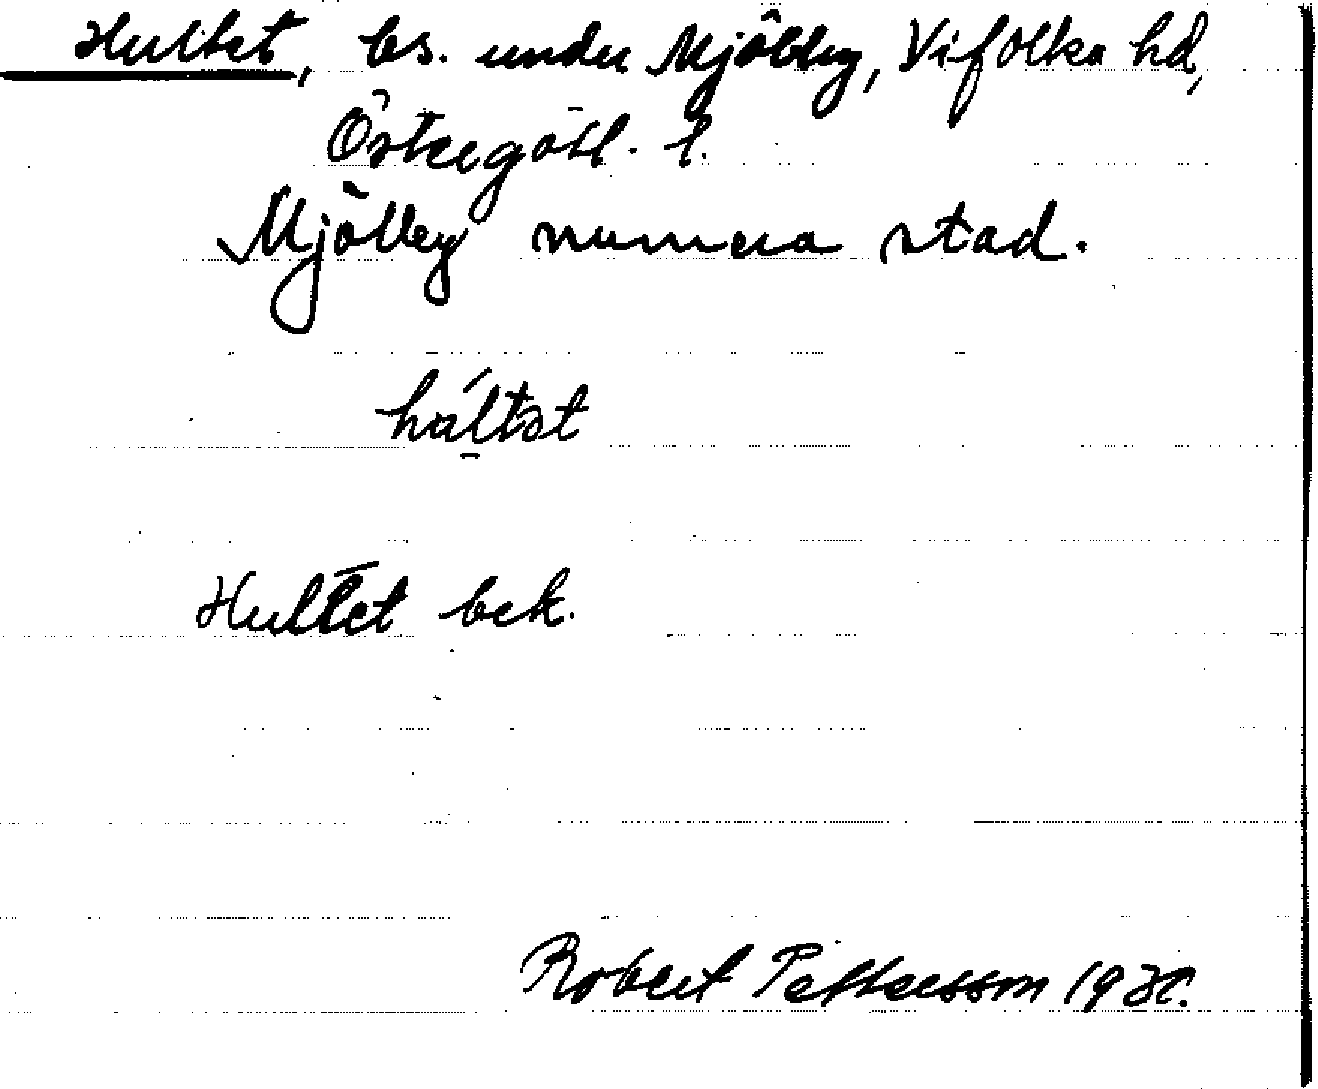 Hultet, bs. under Mjölby, Vifolka hd,
Östergötl. l.
Mjölby numera stad.
húltət
Hultet bek.
Robert Pettersson